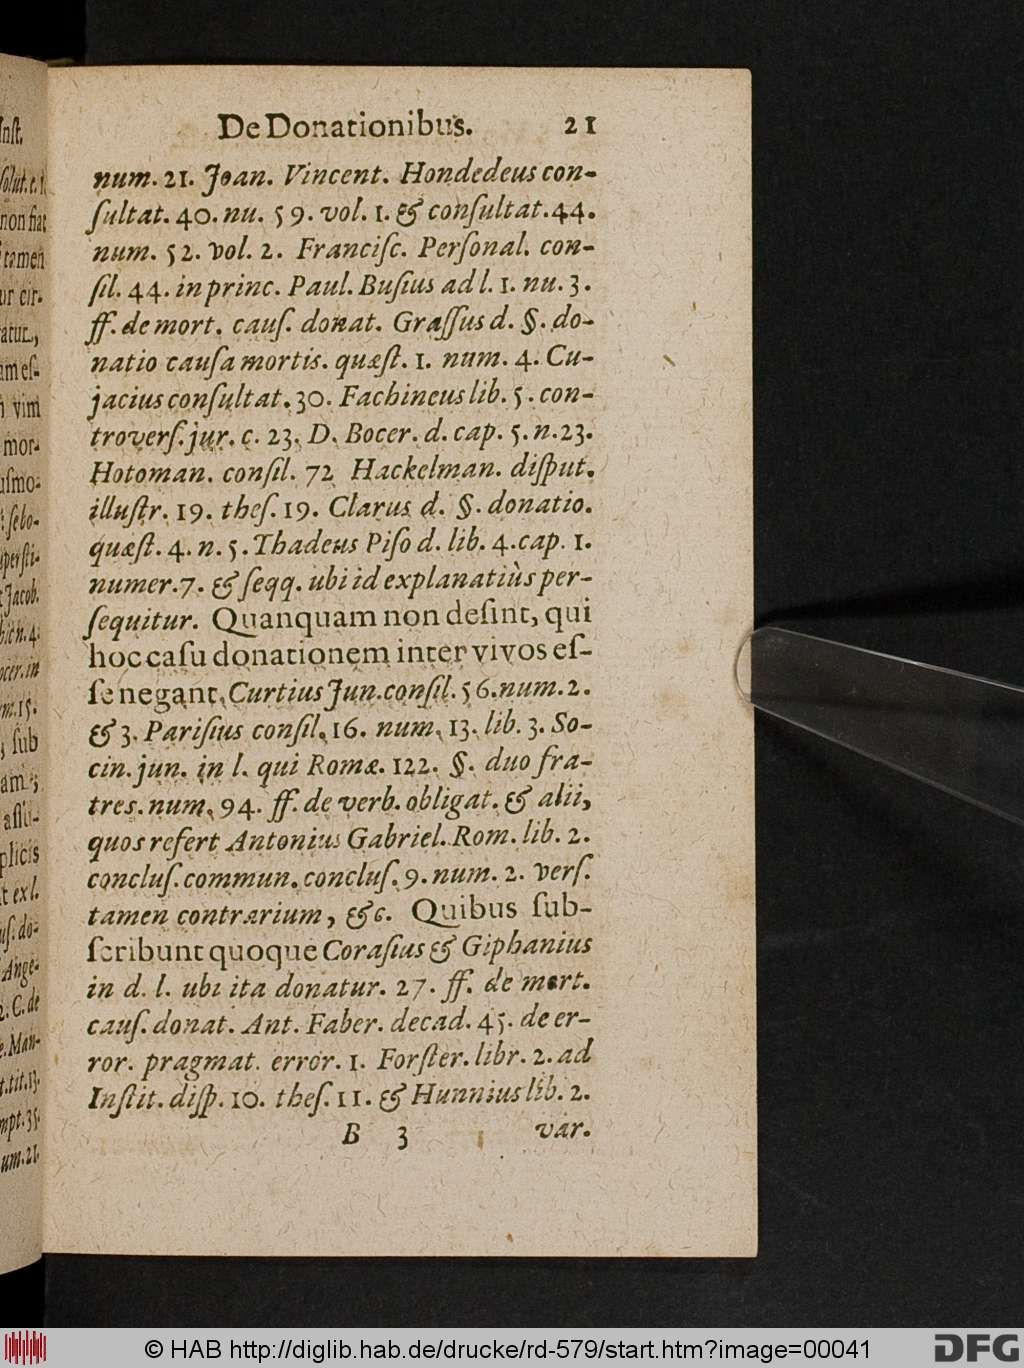 De Donationibus. 21
num. 21. Joan. Vincent. Hondedeus con-
ſultat. 40. nu. 59. vol. 1. & conſultat. 44.
num. 52. vol. 2. Franciſc. Perſonal. con-
ſil. 44. in princ. Paul. Buſius ad l. 1. nu. 3.
ff. de mort. cauſ. donat. Graſſus d. §. do-
natio cauſa mortis. quæſt. 1. num. 4. Cu-
jacius conſultat. 30. Fachineus lib. 5. con-
troverſ. jur. c. 23. D. Bocer. d. cap. 5. n. 23.
Hotoman. conſil. 72 Hackelman. diſput.
illuſtr. 19. theſ. 19. Clarus d. §. donatio.
quæſt. 4. n. 5. Thadeus Piſo d. lib. 4. cap. 1.
numer. 7. & ſeqq. ubi id explanatiùs per-
ſequitur. Quanquam non deſint, qui
hoc caſu donationem inter vivos eſ-
ſe negant, Curtius Jun. conſil. 56. num. 2.
& 3. Pariſius conſil. 16. num. 13. lib. 3. So-
cin. jun. in l. qui Romæ. 122. §. duo fra-
tres. num. 94. ff. de verb. obligat. & alii,
quos refert Antonius Gabriel. Rom. lib. 2.
concluſ. commun. concluſ. 9. num. 2. verſ.
tamen contrarium, &c. Quibus ſub-
ſcribunt quoque Coraſius & Giphanius
in d. l. ubi ita donatur. 27. ff. de mort.
cauſ. donat. Ant. Faber. decad. 45. de er-
ror. pragmat. error. 1. Forſter. libr. 2. ad
Inſtit. diſp. 10. theſ. 11. & Hunnius lib. 2.
B 3 var.
© HAB http://diglib.hab.de/drucke/rd-579/start.htm?image=00041
DFG